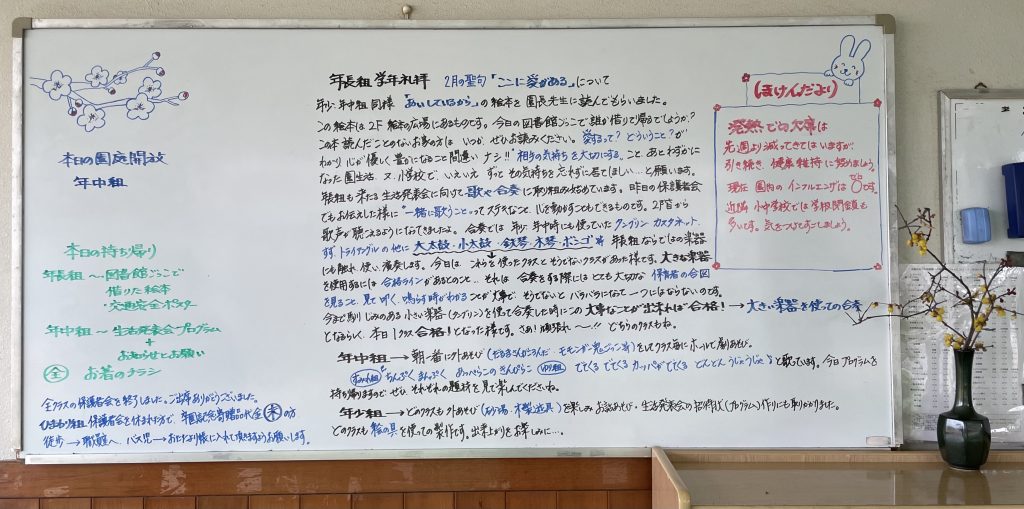 本日の園庭開放
年中組
本日の持ち帰り
年長組〜・図書館ごっこで
借りた絵本
・交通安全ポスター
年中組〜生活発表会プログラム
+
お知らせとお願い
全 お着のチラシ
全クラスの保護者会を終了しました。ご出席ありがとうございました。
保護者会を休まれた方で、卒園記念寄贈品代金 未 の方
徒歩→職員へ、バス児→おたより様に入れて頂きますようお願いします。
年長組 学年礼拝 2月の聖句「ここに愛がある」について
年少・年中組同様「あいしているから」の絵本を園長先生に読んでもらいました。
この絵本は2F 絵本の広場にあるものです。今日の図書館ごっこで誰か借りて帰るでしょうか?
この本読んだことのないお家の方は いつか、ぜひお読みください。愛するって?どういうこと?が
わかり 心が優しく豊かになること間違いナシ!!"相手の気持ちを大切にする。こと、あとわずかに
なった園生活、又、小学校で、いえいえ ずっとその気持ちを忘れずに居てほしい…と願います。
年長組も来たる生活発表会に向けて歌や合奏に取り組み始めています。昨日の保護者会
でもお伝えした様に"一緒に歌うこと"ってステキなこと、心を動かすこともできるものです。2F音から
歌声が聴こえるようになってきましたよ。合奏では年少・年中時にも使っていたタンブリン・カスタネット・
すず・トライアングルの他に大太鼓・小太鼓・鉄琴・木琴・ボンゴ等 年長組ならではの楽器
にも触れ、使い、演奏します。今日は、これらを使ったクラスとそうでないクラスがあった様です。大きな楽器
を使用するには合格ラインがあるとのこと…それは 合奏をする際にはとても大切な 保育者の合図
を見ること、見て叩く、鳴らす時がわかることが大事で、そうでないとバラバラになって一つにはならないのです。
今まで馴じみのある小さい楽器(タンブリン)を使って合奏した時にこの大事なことが出来れば合格!→大きい楽器を使っての合奏
となるらしく、本日1クラス合格!となった様です。さあ!頑張れ〜!!どちらのクラスもね。
年中組→朝一番に外あそび(だるまさんがころんだ・モモンガ・鬼ごっこ等)をしてクラス毎にホールで劇あそび。
ちんぷく まんぷく あっぺらこの きんぴらこ でてくる でてくる カッパがでてくる どんどん うじゃうじゃ♪と歌っています。今日プログラムを
持ち帰りますので、ぜひ、それぞれの題材を見て楽しんでくださいね。
年少組→どのクラスも外あそび(砂場・木製遊具)を楽しみ お話あそび・生活発表会の招待状(プログラム)作りにも取りかかりました。
どのクラスも絵の具を使っての製作です。出来上がりをお楽しみに…。
ほけんだより
発熱での欠席は
先週より減ってきてはいますが
引き続き、健康維持に努めましょう。
現在 園内のインフルエンザは0です。
近隣小中学校では学級閉鎖も
多いです。気をつけてすごしましょう。